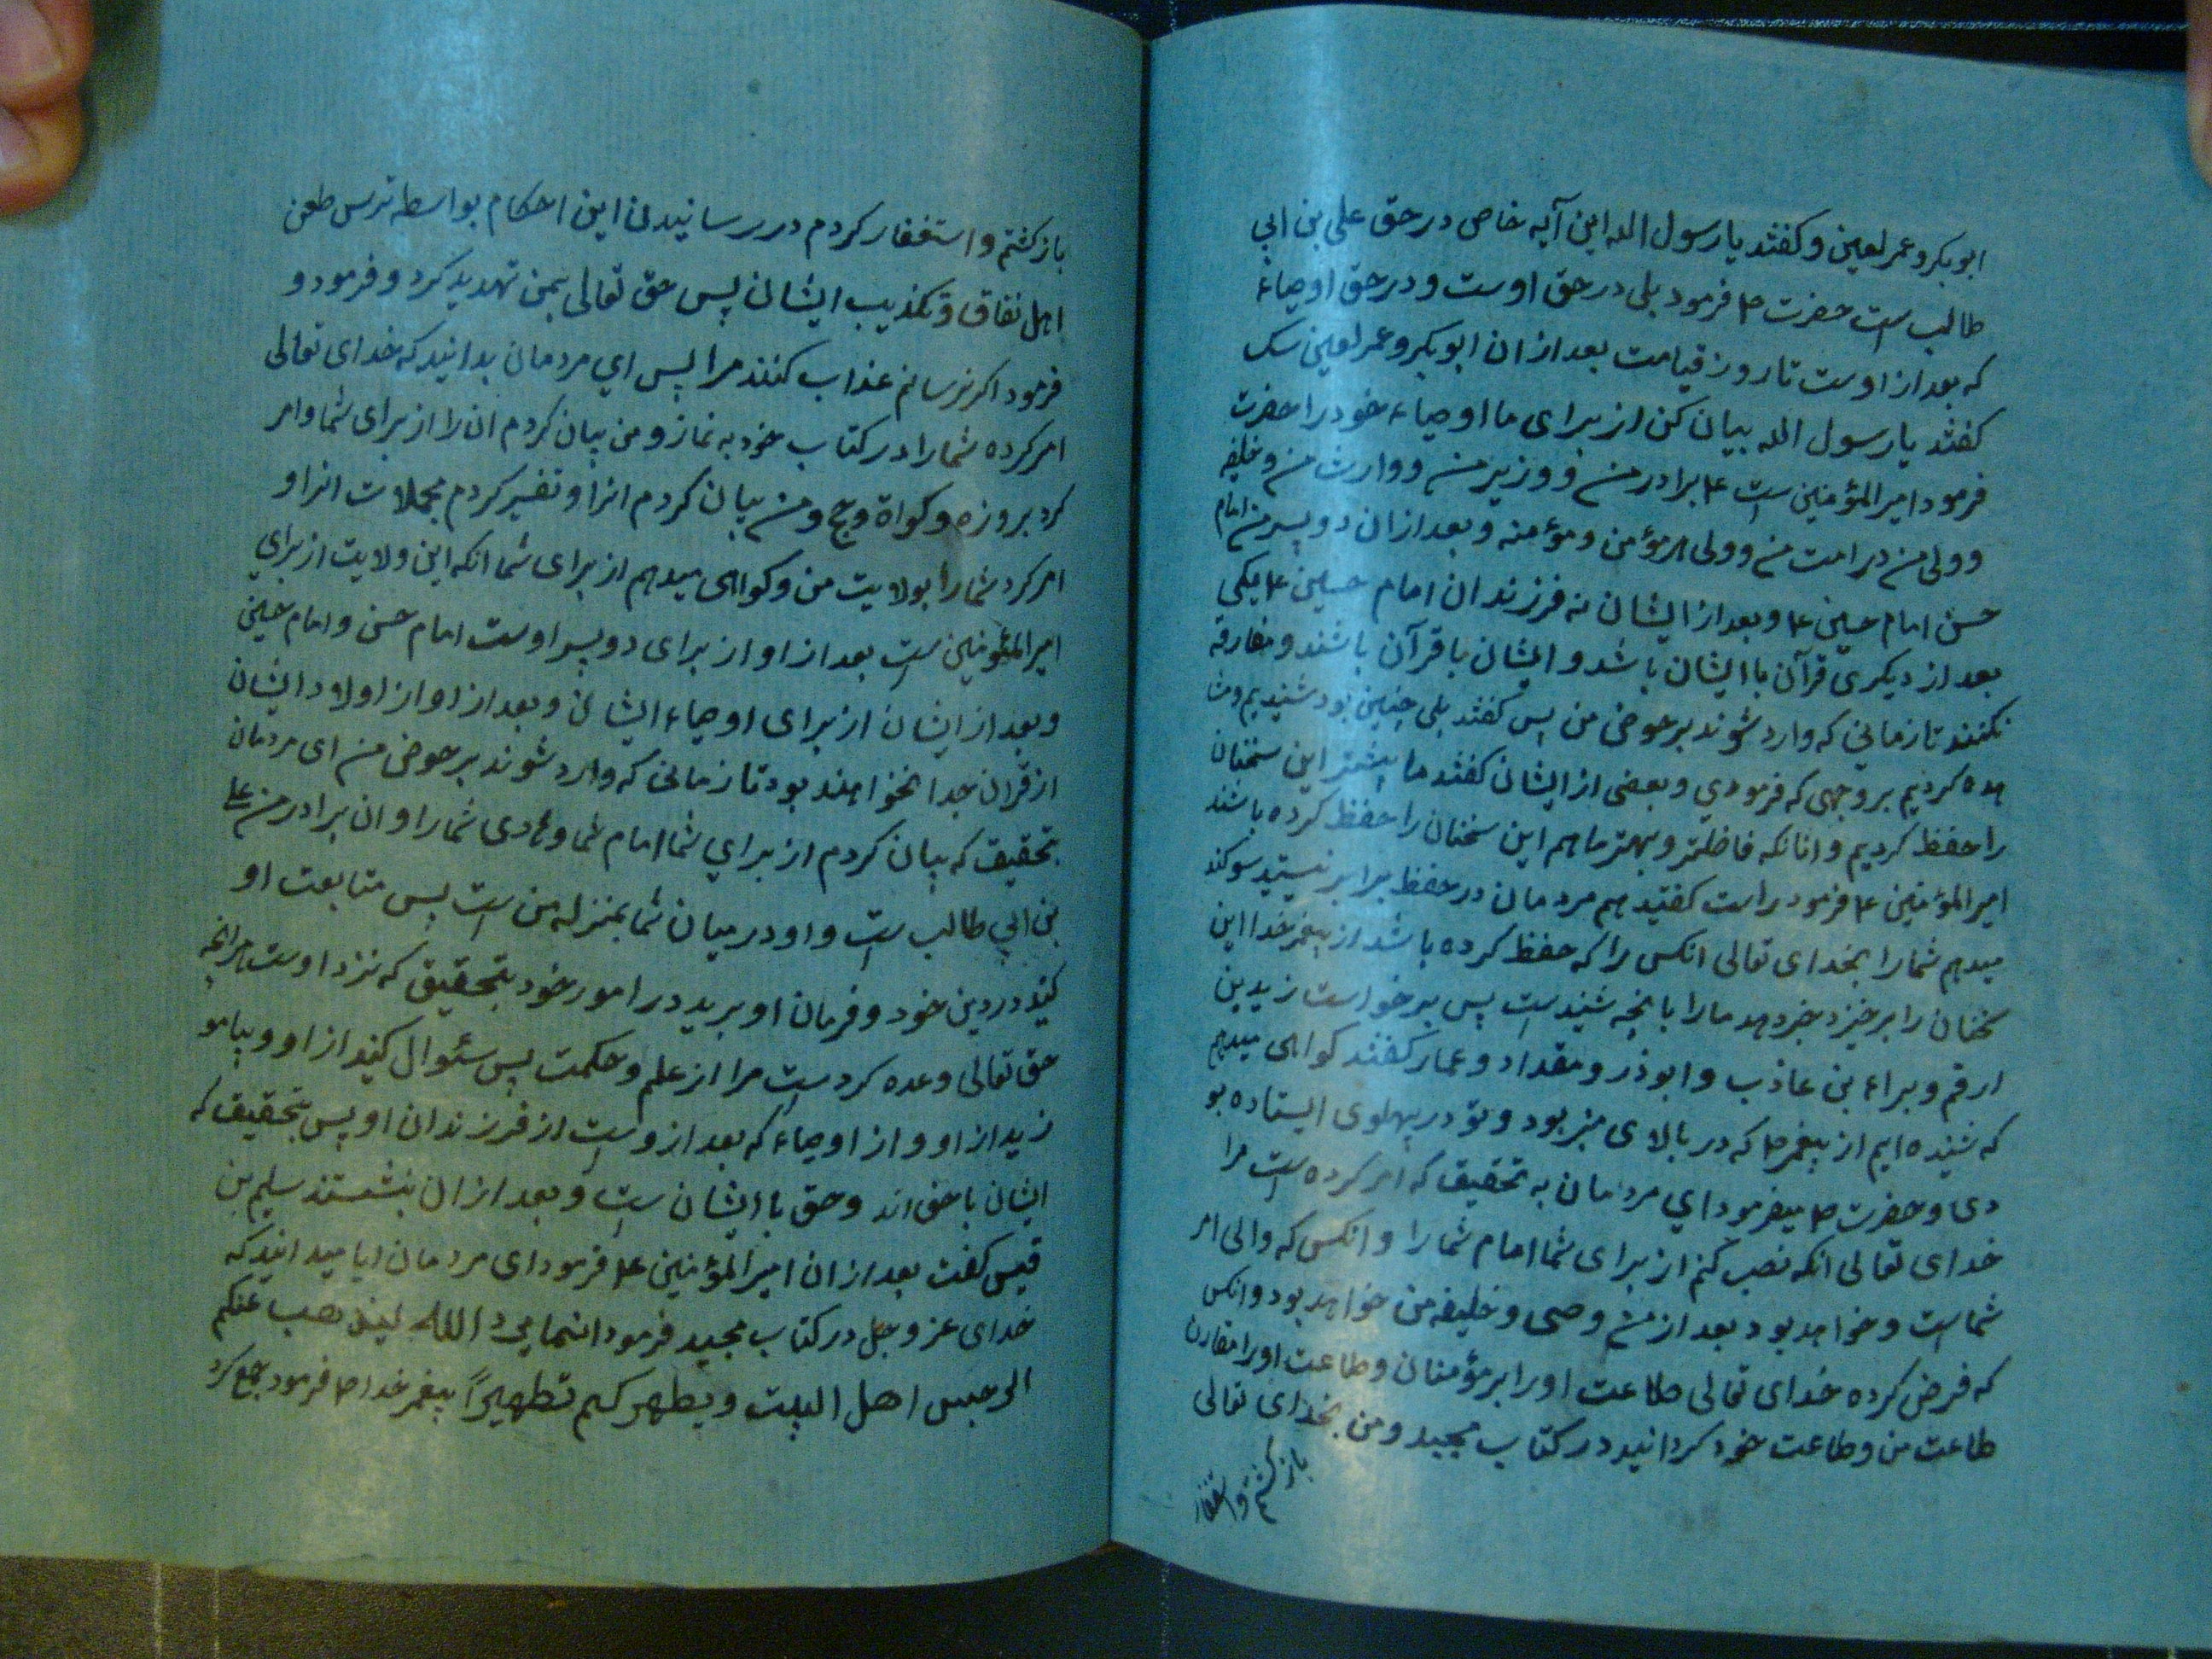 ابوبکر و عمر لعین و کفتند یا رسول الله این آیه خاص در حق علی بن ابی
طالب ست حضرت ص فرمود بلی در حق اوست و در حق اوصیاء
که بعد از اوست تا روز قیامت بعد از ان ابوبکر و عمر لعین سک
کفتند یا رسول الله بیان کن از برای ما اوصیاء خود را حضرت
فرمود امیر المؤمنین ست ع برادر من و وزیر من و وارث من و خلیفه
و ولی من در امت من و ولی هر مؤمن و مؤمنه و بعد از ان دو پسر من امام
حسن امام حسین ع و بعد از ایشان نه فرزندان امام حسین ع یکی
بعد از دیکری قرآن با ایشان باشد و ایشان با قرآن باشند و مفارقه
نکنند تا زمانی که وارد شوند بر حوض من پس کفتند بلی چنین بود شنیدیم و مشا
هده کردیم بر وجهی که فرمودی و بعضی از ایشان کفتند ما بیشتر این سخنان
را حفظ کردیم و انانکه فاضلتر و بهتر ما هم این سخنان را حفظ کرده باشند
امیر المؤمنین ع فرمود راست کفتید هم مردمان در حفظ برابر نیستید سوکند
میدهم شما را بخدای تعالی انکس را که حفظ کرده باشد از پیغمبر خدا این
سخنان را بر خیزد خبر دهد ما را بانچه شنیدست پس بر خواست زید بن
ارقم و براء بن عاذب و ابوذر و مقداد و عمار کفتند کواهی میدهیم
که شنیده ایم از پیغمبر ص که در بالای منبر بود و تو در پهلوی ایستاده بو
دی و حضرت ص میفرمود ای مردمان به تحقیق که امر کرده ست مرا
خدای تعالی انکه نصب کنم از برای شما امام شما را و انکس که والی امر
شماست و خواهد بود بعد از من وصی و خلیفه من خواهد بود و انکس
که فرض کرده خدای تعالی طاعت او را بر مؤمنان و طاعت او را مقارن
طاعت من و طاعت خود کردانید در کتاب مجید و من بخدای تعالی
باز کشتم و استغفار
باز کشتم و استغفار کردم در رسانیدن این احکام بواسطه ترس طعن
اهل نفاق و تکذیب ایشان پس حق تعالی بمن تهدید کرد و فرمود و
فرمود اکر نرسانم عذاب کنند مرا پس ای مردمان بدانید که خدای تعالی
امر کرده شما را در کتاب خود به نماز و من بیان کردم ان را از برای شما و امر
کرد بروزه و کواة و حج و من بیان کردم انرا و تفسیر کردم مجملات انرا و
امر کرد شما را بولایت من و کواهی میدهم از برای شما انکه این ولایت از برای
امیر المؤمنین ست بعد از او از برای دو پسر اوست امام حسن و امام حسین
و بعد از ایشان از برای اوصیاء ایشان و بعد از او از اولاد ایشان
از قران جدا نخواهند بود تا زمانی که وارد شوند بر حوض من ای مردمان
بتحقیق که بیان کردم از برای شما امام شما و هادی شما را و ان برادر من علی
بن ابی طالب ست و او در میان شما بمنزله من ست پس متابعت او
کنید در دین خود و فرمان او برید در امور خود بتحقیق که نزد اوست هرانچه
حق تعالی وعده کردست مرا از علم و حکمت پس سئوال کنید از او و بیامو
زید از او و از اوصیاء که بعد از وست از فرزندان او پس بتحقیق که
ایشان با حق اند و حق با ایشان ست و بعد از ان بنشستند سلیم بن
قیس کفت بعد از ان امیر المؤمنین ع فرمود ای مردمان ایا میدانید که
خدای عز و جل در کتاب مجید فرمود انما یرید الله لیذهب عنکم
الرجس اهل البیت و یطهرکم تطهیراً پیغمبر خدا ص فرمود جمع کرد